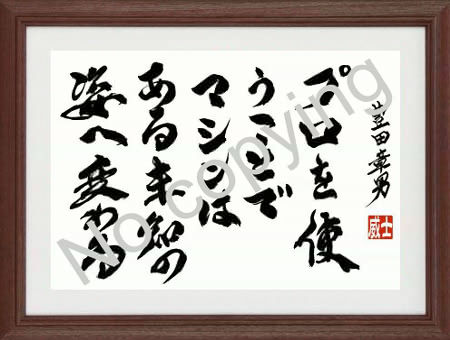 プロを使
うことで
マシンは
ある未知の
姿へ変わる
豊田章男
威士
No copying